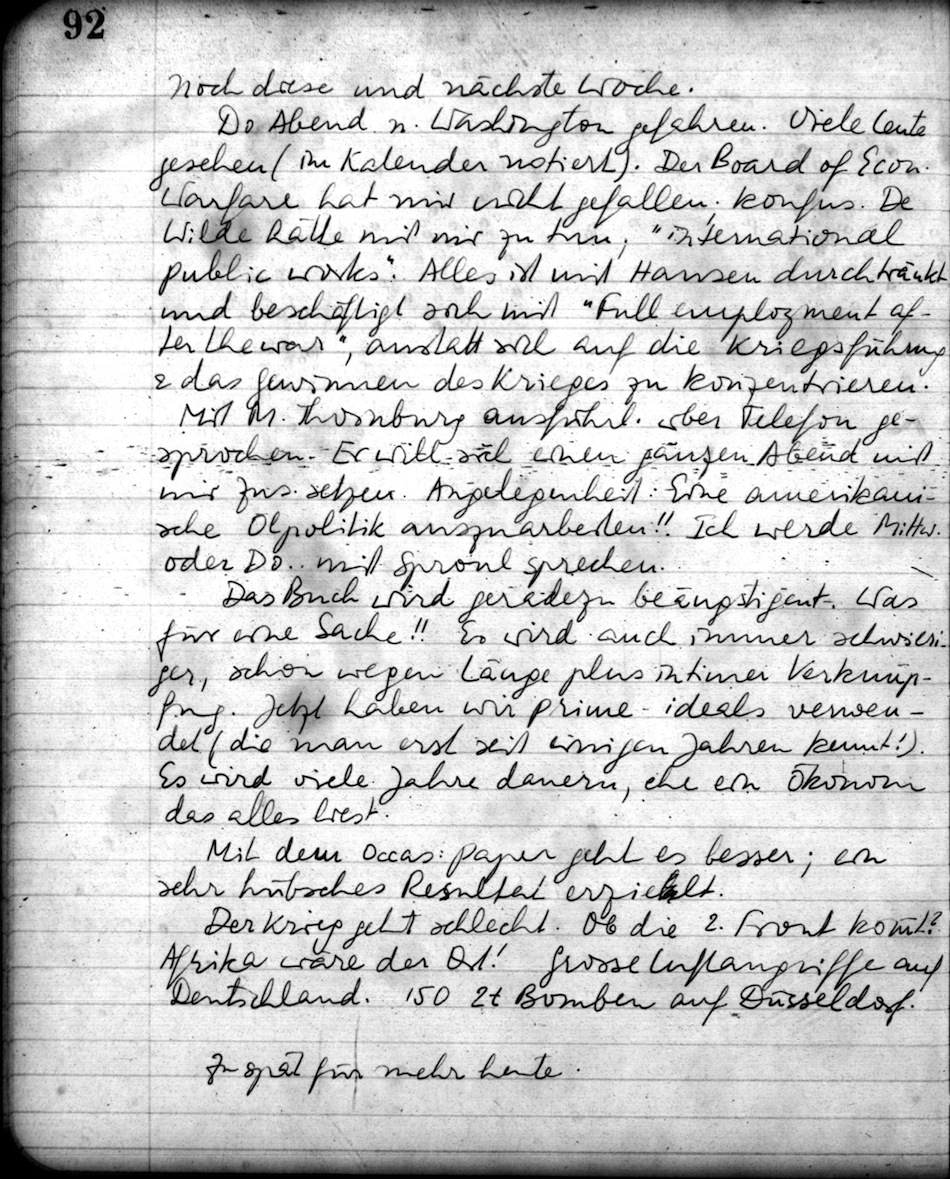 92
Noch diese und nächste Woche.
Do Abend n. Washington gefahren. Viele Leute
gesehen (im Kalender notiert). Der Board of Econ.
Warfare hat mir nicht gefallen; konfus. De
Wilde hätte mit mir zu tun, "international
public works". Alles ist mit Hansen durchtränkt
und beschäftigt sich mit "Full employment af-
ter the war", anstatt sich auf die Kriegsführung
& das Gewinnen des Krieges zu konzentrieren.
Mit M. Thornburg ausführl. über Telefon ge-
sprochen. Er will sich einen ganzen Abend mit
mir zus.setzen. Angelegenheit: Eine amerikani-
sche Ölpolitik auszuarbeiten!! Ich werde Mittw.
oder Do. mit Sproul sprechen.
Das Buch wird geradezu beängstigent. Was
für eine Sache!! Es wird auch immer schwieri-
ger, schon wegen Länge plus intimer Verknüp-
fung. Jetzt haben wir prime-ideals verwen-
det (die man erst seit einigen Jahren kennt!).
Es wird viele Jahre dauern, ehe ein Ökonom
das alles liest.
Mit dem Occas: paper geht es besser; ein
sehr hübsches Resultat erzielt.
Der Krieg geht schlecht. Ob die 2. Front kom̄t?
Afrika wäre der Ort! Grosse Luftangriffe auf
Deutschland. 150 2t Bomben auf Düsseldorf.
Zu spät für mehr heute.